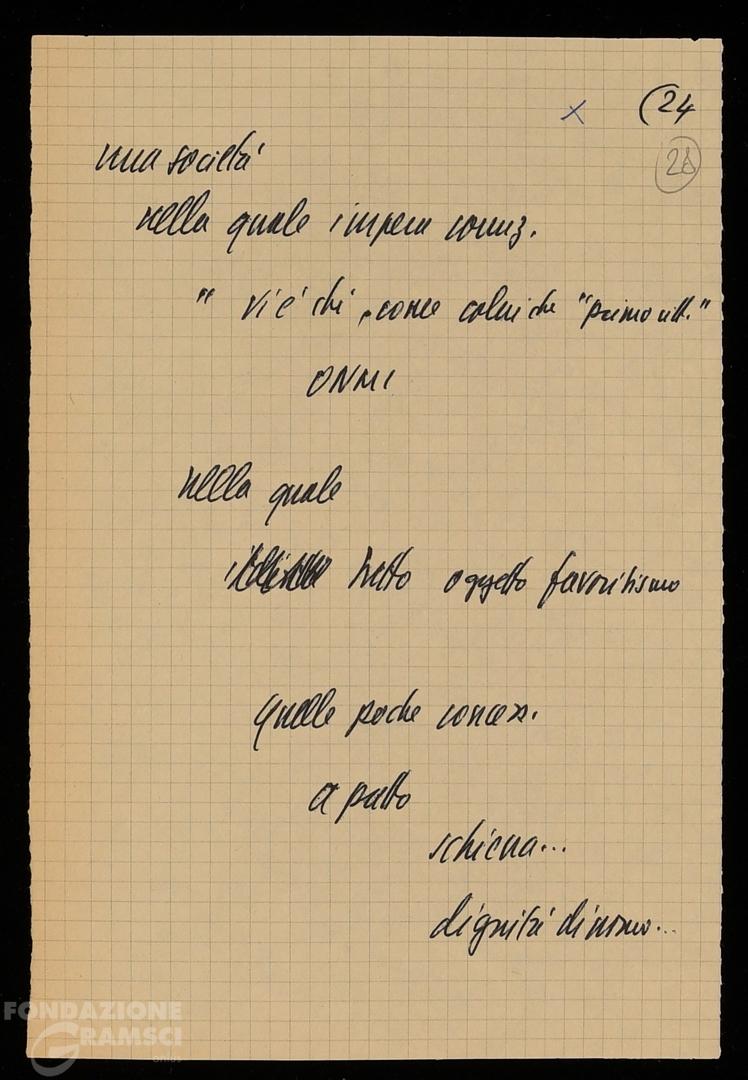 x (24
28
una società
nella quale impera corruz.
" vi è chi, come colui che "primo citt."
ONMI
nella quale
tutto oggetto favoritismo
quelle poche concess.
a patto
schiena...
dignità di uomo...
FONDAZIONE
GRAMSCI
onlus